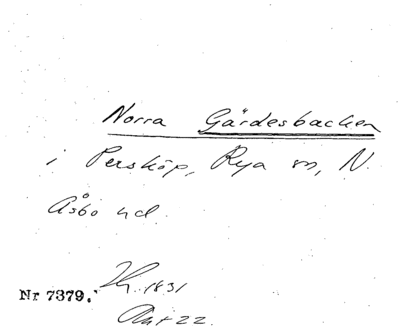 Norra Gärdesbacken
i Persköp, Rya sn, N.
Åsbo hd.
1831
Nr 7379.
22.